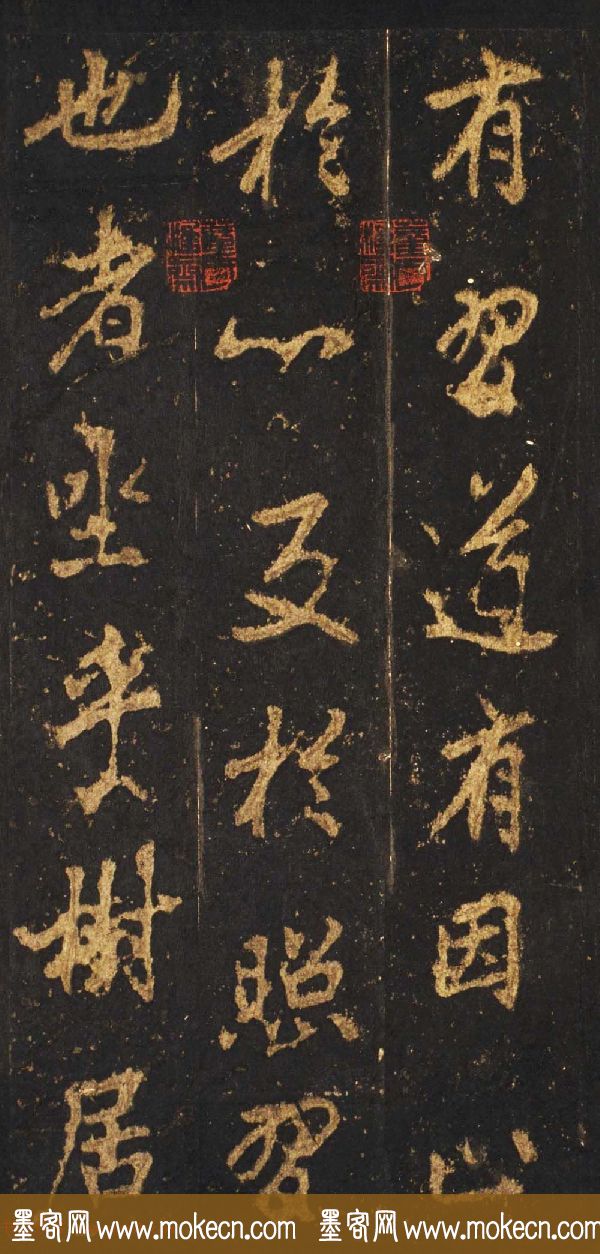 有習道有因心
於心反於照習
也者坐乘樹居
墨客网 www.mokecn.com 墨客网 www.mokecn.com